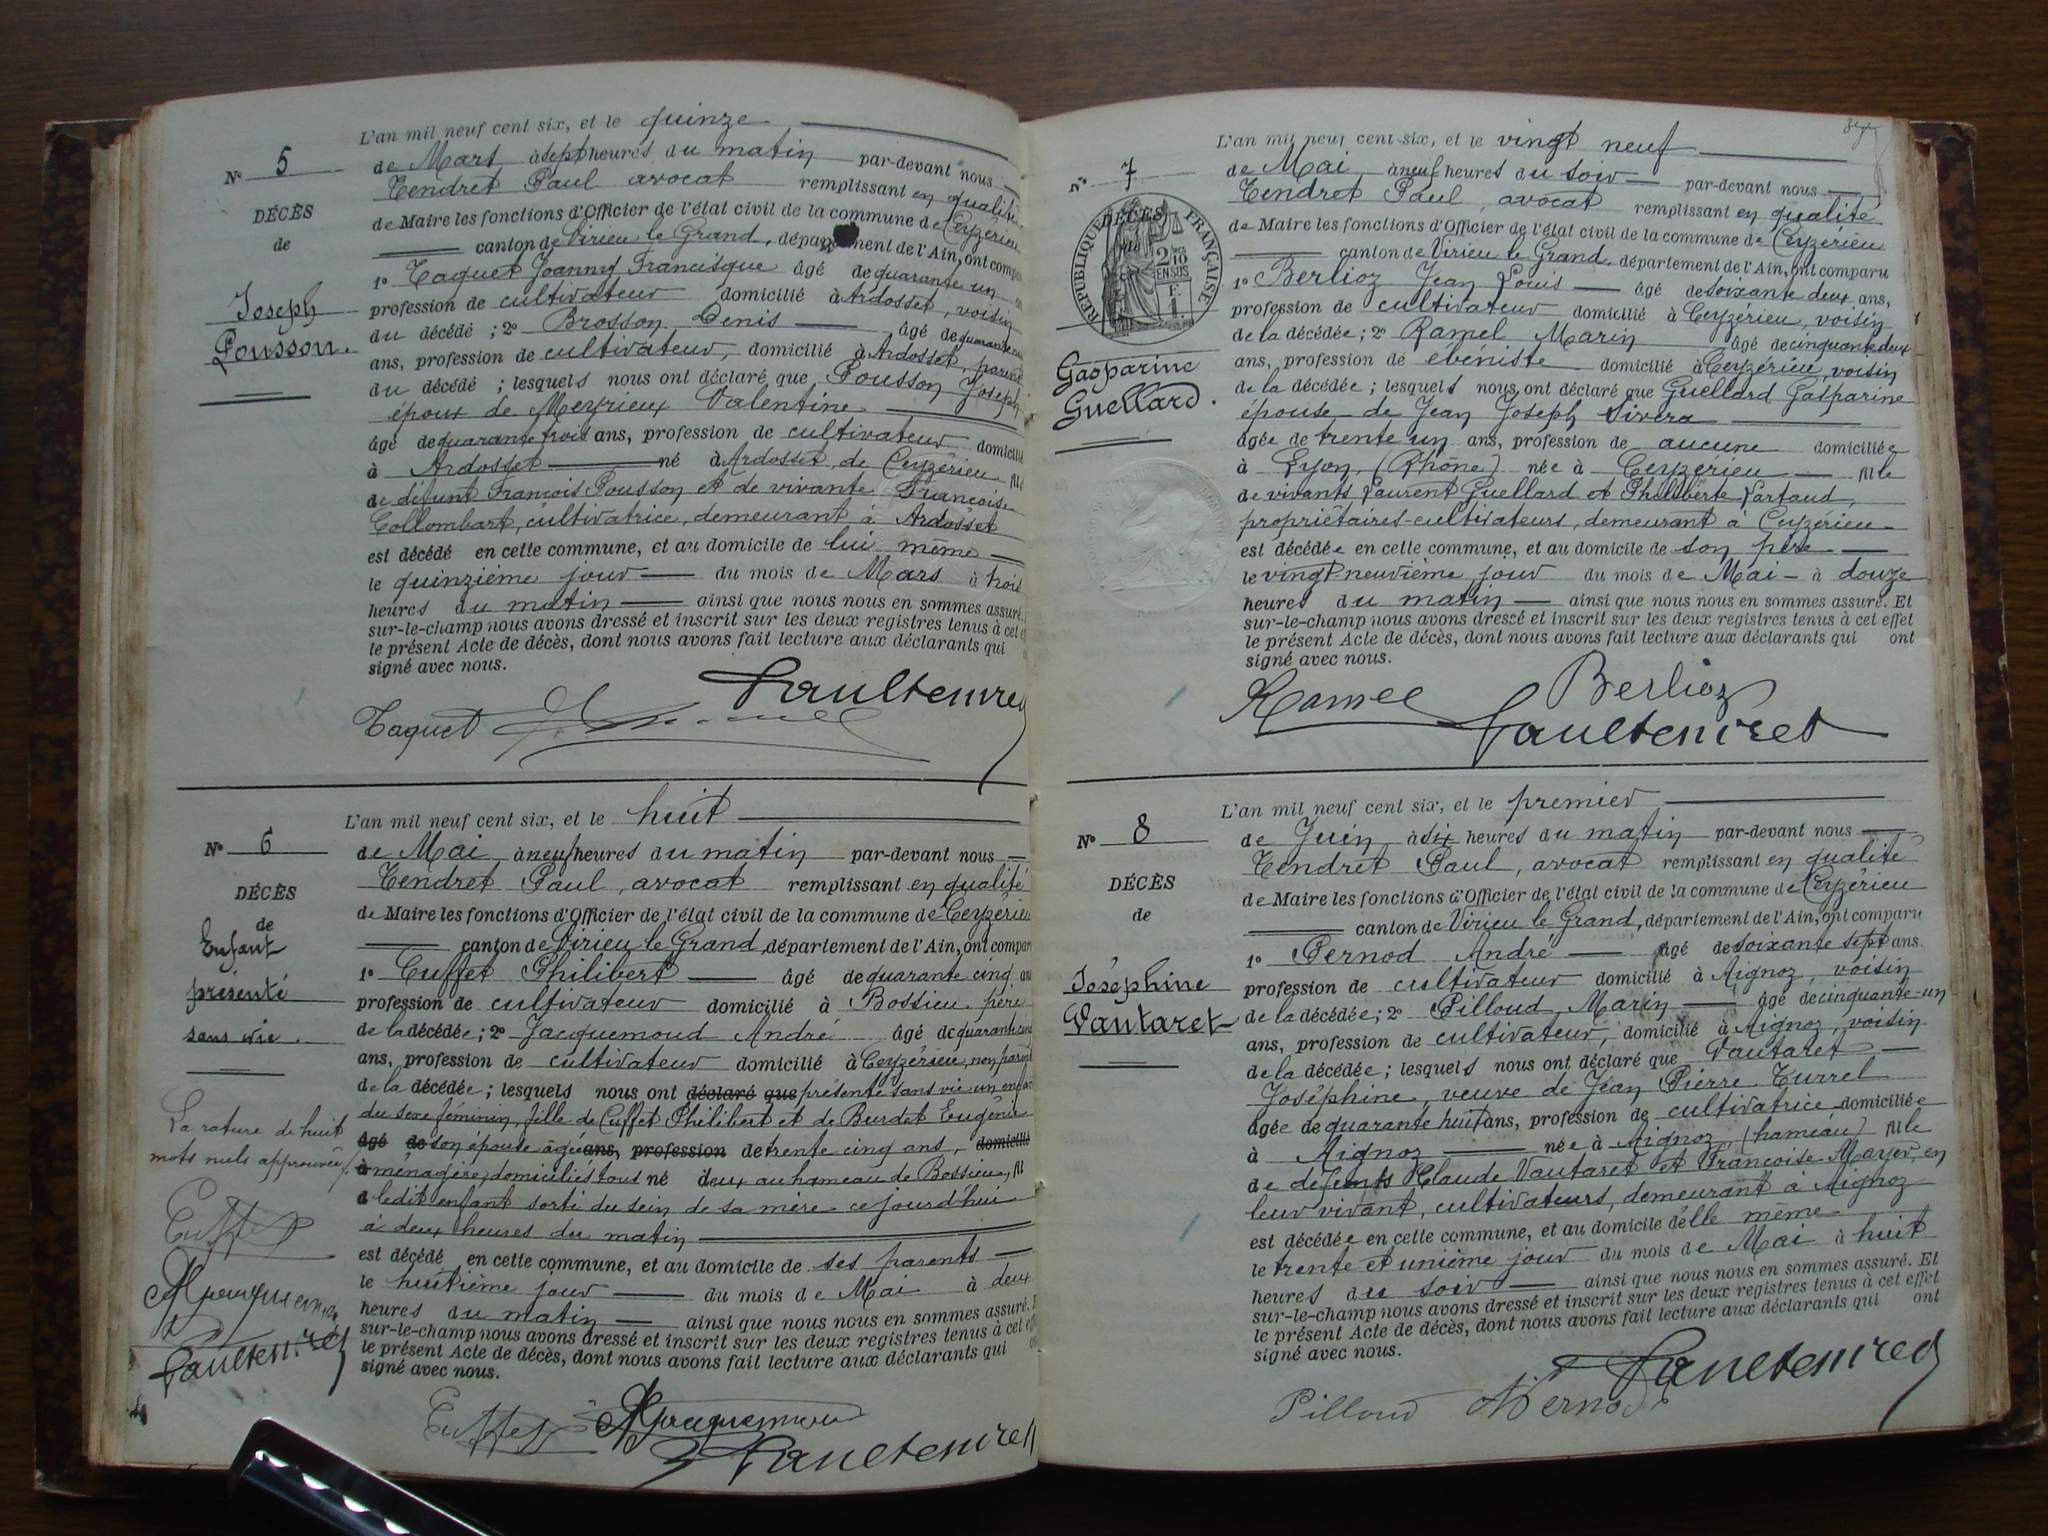 L'an mil neuf cent six, et le quinze
N° 5
de Mars à sept heures du matin par-devant nous
Tendret Paul avocat remplissant en qualité
DÉCÈS
de Maire les fonctions d'Officier de l'état civil de la commune de Ceyzérieu
de
canton de Virieu le Grand, département de l'Ain, ont comparu
1° Taquet Joanny Francisque âgé de quarante un
Joseph
Pousson.
profession de cultivateur domicilié à Ardosset, voisin
du décédé ; 2° Brosson Denis âgé de quarante
ans, profession de cultivateur, domicilié à Ardosset, parent
du décédé ; lesquels nous ont déclaré que Pousson Joseph
époux de Meyrieux Valentine
âgé de quarante trois ans, profession de cultivateur domicilié
à Ardosset né à Ardosset, de Ceyzérieu fils
de défunt François Pousson et de vivante Françoise
Collombart, cultivatrice, demeurant à Ardosset
est décédé en cette commune, et au domicile de lui même
le quinzième jour du mois de Mars à trois
heures du matin ainsi que nous nous en sommes assuré.
sur-le-champ nous avons dressé et inscrit sur les deux registres tenus à cet
le présent Acte de décès, dont nous avons fait lecture aux déclarants qui
signé avec nous.
Paul Tendret
Taquet
L'an mil neuf cent six, et le huit
N° 6
de Mai à neuf heures du matin par-devant nous
Tendret Paul, avocat remplissant en qualité
DÉCÈS
de Maire les fonctions d'Officier de l'état civil de la commune de Ceyzérieu
de
Enfant
présenté
sans vie.
canton de Virieu le Grand, département de l'Ain, ont comparu
1° Cuffet Philibert âgé de quarante cinq ans
profession de cultivateur domicilié à Bossieu, père
de la décédée ; 2° Jacquemoud André âgé de quarante
ans, profession de cultivateur domicilié à Ceyzérieu, non parent
de la décédée ; lesquels nous ont déclaré que présenté sans vie un enfant
du sexe féminin, fille de Cuffet Philibert et de Burdet Eugénie
âgé de son épouse âgée ans, profession de trente cinq ans, domicilié
à ménagère, domiciliés tous né deux au hameau de Bossieu, fil
d ledit enfant sorti du sein de sa mère ce jourd'hui
à deux heures du matin
est décédé en cette commune, et au domicile de ses parents
le huitième jour du mois de Mai à deux
heures du matin ainsi que nous nous en sommes assuré.
sur-le-champ nous avons dressé et inscrit sur les deux registres tenus à cet
le présent Acte de décès, dont nous avons fait lecture aux déclarants qui
signé avec nous.
La rature de huit
mots nuls approuvée
Cuffet
Jacquemoud
Paul Tendret
Cuffet Jacquemoud
Paul Tendret
L'an mil neuf cent six, et le vingt neuf
N° 7
de Mai à neuf heures du soir par-devant nous
Tendret Paul, avocat remplissant en qualité
DÉCÈS
de
RÉPUBLIQUE FRANÇAISE
2/10 EN SUS
de Maire les fonctions d'Officier de l'état civil de la commune de Ceyzérieu
canton de Virieu le Grand, département de l'Ain, ont comparu
1° Berlioz Jean Louis âgé de soixante deux ans,
profession de cultivateur domicilié à Ceyzérieu, voisin
de la décédée ; 2° Ramel Marin âgé de cinquante deux
Gasparine
Guellard.
ans, profession de ébéniste domicilié à Ceyzérieu, voisin
de la décédée ; lesquels nous ont déclaré que Guellard Gasparine
épouse de Jean Joseph Sivera
âgée de trente un ans, profession de aucune domiciliée
à Lyon, (Rhône) née à Ceyzérieu fille
de vivants Laurent Guellard et Philiberte Lartaud,
propriétaires-cultivateurs, demeurant à Ceyzérieu
est décédée en cette commune, et au domicile de son père
le vingt-neuvième jour du mois de Mai à douze
heures du matin ainsi que nous nous en sommes assuré. Et
sur-le-champ nous avons dressé et inscrit sur les deux registres tenus à cet effet
le présent Acte de décès, dont nous avons fait lecture aux déclarants qui ont
signé avec nous.
Ramel Berlioz
Paul Tendret
L'an mil neuf cent six, et le premier
N° 8
de Juin à six heures du matin par-devant nous
Tendret Paul, avocat remplissant en qualité
DÉCÈS
de Maire les fonctions d'Officier de l'état civil de la commune de Ceyzérieu
de
canton de Virieu le Grand, département de l'Ain, ont comparu
1° Pernod André âgé de soixante sept ans
Joséphine
Vautaret
profession de cultivateur domicilié à Aignoz, voisin
de la décédée ; 2° Pilloud Marin âgé de cinquante-un
ans, profession de cultivateur, domicilié à Aignoz, voisin
de la décédée ; lesquels nous ont déclaré que Vautaret
Joséphine, veuve de Jean Pierre Turrel
âgée de quarante huit ans, profession de cultivatrice domiciliée
à Aignoz née à Aignoz (hameau) fille
de défunts Claude Vautaret et Françoise Mayer, en
leur vivant, cultivateurs, demeurant à Aignoz
est décédée en cette commune, et au domicile d'elle même
le trente et unième jour du mois de Mai à huit
heures du soir ainsi que nous nous en sommes assuré. Et
sur-le-champ nous avons dressé et inscrit sur les deux registres tenus à cet effet
le présent Acte de décès, dont nous avons fait lecture aux déclarants qui ont
signé avec nous.
Paul Tendret
Pilloud Pernod